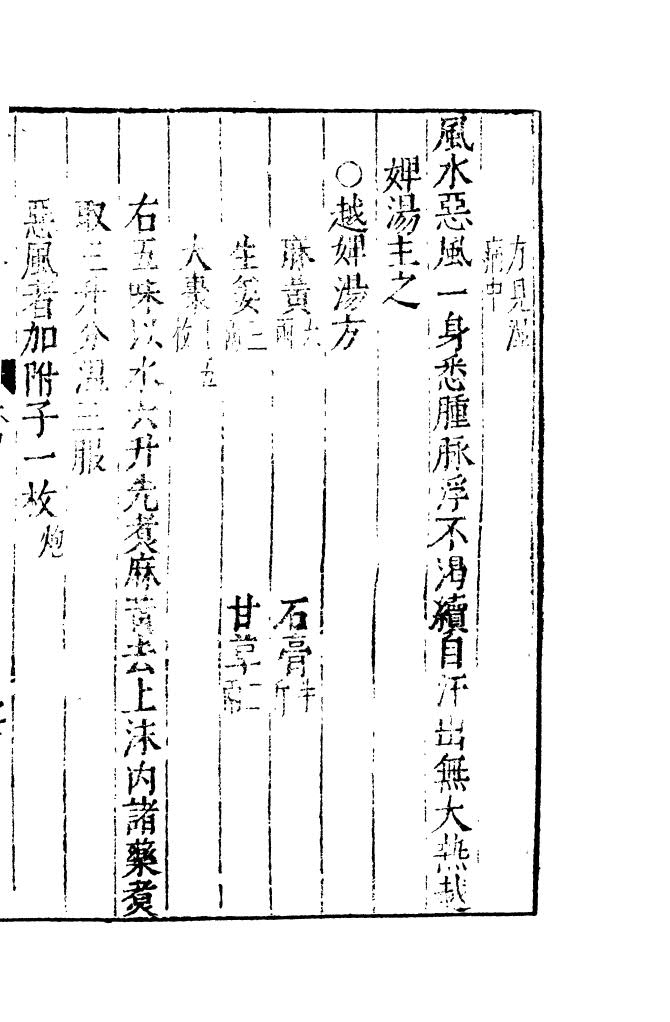 方見濕
病中
風水惡風一身悉腫脉浮不渴續自汗出無大熱越
婢湯主之
○越婢湯方
麻黃六兩 石膏半斤
生姜三兩 甘草二兩
大棗十五枚
右五味以水六升先煮麻黃去上沫內諸藥煮
取三升分溫三服
惡風者加附子一枚炮